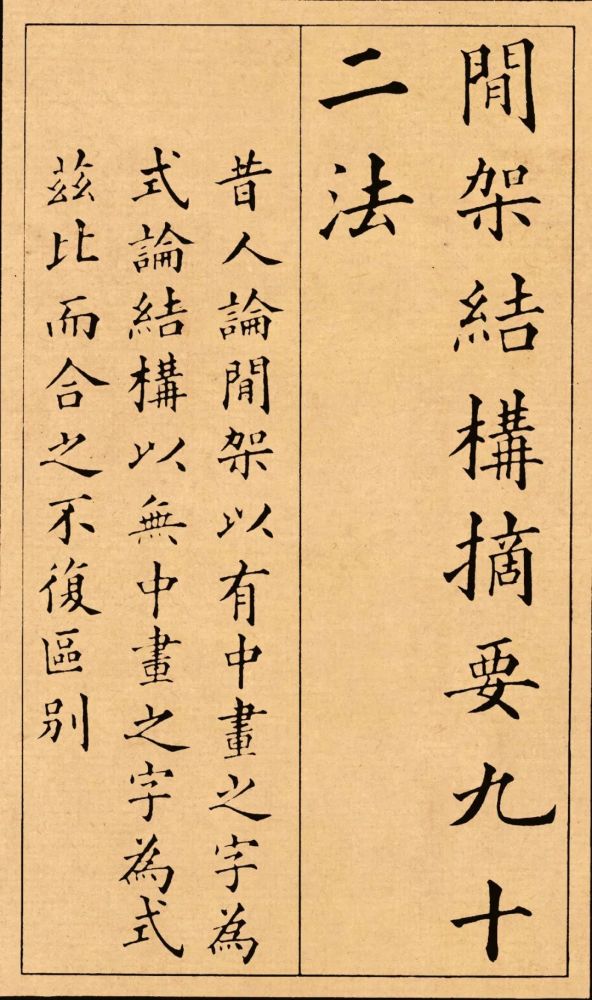 閒架結構摘要九十
二法
昔人論閒架以有中畫之字為
式論結構以無中畫之字為式
茲比而合之不復區别